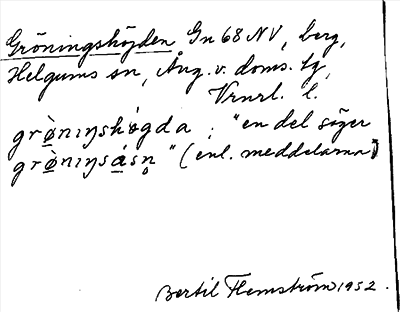 Gröningshöjden Gn 68 NV, berg,
Helgums sn, Ång. v. doms. tg,
Vrnrl. l.
grø̀niŋshøgda ; "en del säger
grø̀niŋsásn̥ " (enl. meddelarna)
Bertil Flemström 1952.